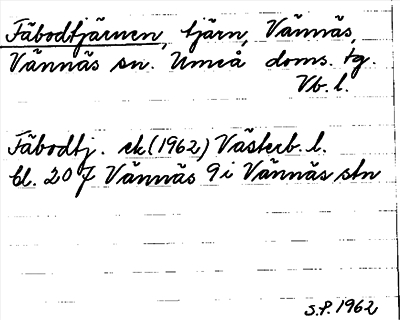 Fäbodtjärnen, tjärn, Vännäs,
Vännäs sn. Umeå doms. tg.
Vb. l.
Fäbodtj. ek(1962) Västerb. l.
bl. 207 Vännäs 9 i Vännäs stn
S.P. 1962